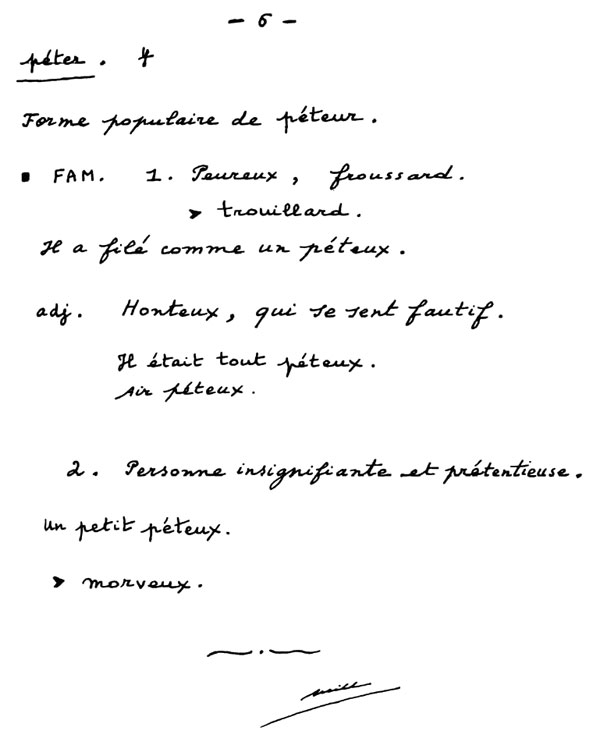 - 6 -
péter. 4
Forme populaire de péteur.
▪ FAM. 1. Peureux, froussard.
➤ trouillard.
Il a filé comme un péteux.
adj. Honteux, qui se sent fautif.
Il était tout péteux.
Air péteux.
2. Personne insignifiante et prétentieuse.
Un petit péteux.
➤ morveux.